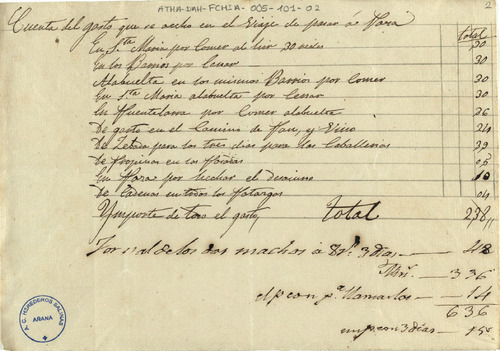 ATHA-DAH-FCHIA-005-101-02
2
Cuenta del gasto que se aecho en el Viaje de pasar á Jara
total
En Sta Maria por Comer al hir 30 reales 30
En los Barrios por Cenar 30
Alabuelta en los mismos Barrios por Comer 30
En Sta Maria alabuelta por Cenar 30
En Fuentelarna por Comer alabuelta 26
De gasto en el Camino de Pan, y Vino 24
De Zebada para los tres dias para dos Caballerias 29
De Propinas en las 05
En por hechar el 10
De en todos los 04
Ymporte de todo el gasto, Total 238
Jornal de los dos machos á 8 rs 3 dias — 48
336
el peon pa llamarlos — 14
636
un peon 3 dias — 15
A. C. HEREDEROS SALINAS
ARANA